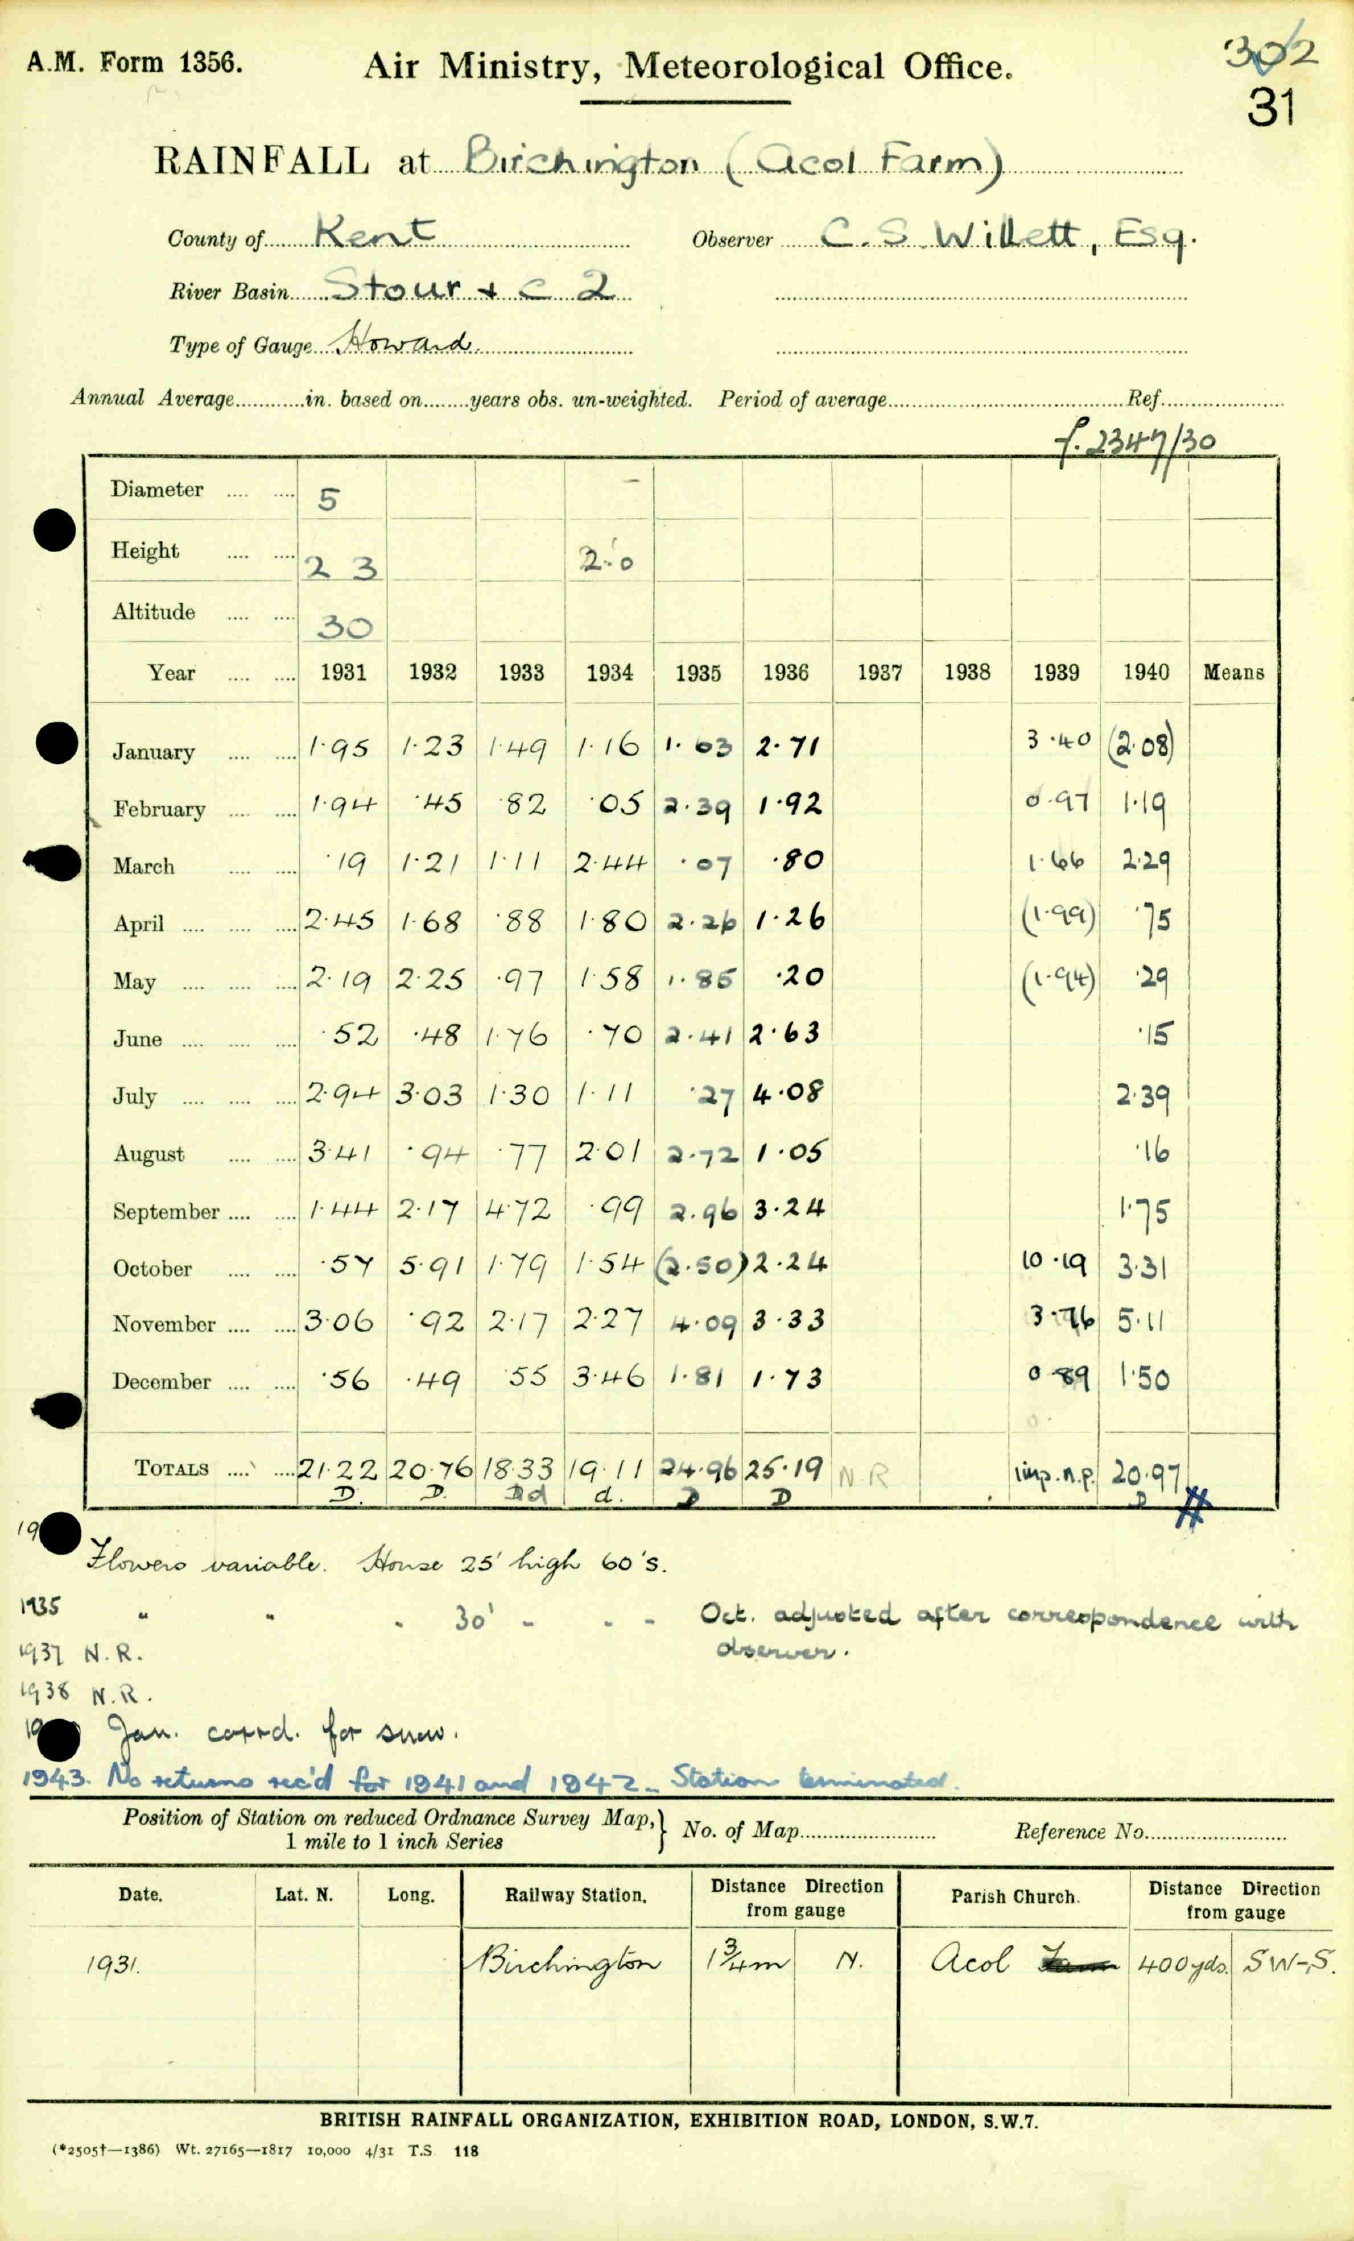 A.M. Form 1356.
Air Ministry, Meteorological Office.
302
31
RAINFALL at Birchington (Acol Farm)
County of Kent Observer C. S. Willett, Esq.
River Basin Stour + C 2
Type of Gauge Howard
Annual Average............in. based on........years obs. un-weighted. Period of average.............Ref.............
f. 2347/30
Diameter .... .... 5
Height .... .... 2 3 2·0
Altitude .... .... 30
Year .... .... 1931 1932 1933 1934 1935 1936 1937 1938 1939 1940 Means
January .... .... 1·95 1·23 1·49 1·16 1·63 2·71 3·40 (2·08)
February .... .... 1·94 ·45 ·82 ·05 2·39 1·92 0·97 1·19
March .... .... ·19 1·21 1·11 2·44 ·07 ·80 1·66 2·29
April .... .... .... 2·45 1·68 ·88 1·80 2·26 1·26 (1·99) ·75
May .... .... .... 2·19 2·25 ·97 1·58 1·85 ·20 (1·94) ·29
June .... .... .... ·52 ·48 1·76 ·70 2·41 2·63 ·15
July .... .... .... 2·94 3·03 1·30 1·11 ·27 4·08 2·39
August .... .... 3·41 ·94 ·77 2·01 2·72 1·05 ·16
September .... .... 1·44 2·17 4·72 ·99 2·96 3·24 1·75
October .... .... ·57 5·91 1·79 1·54 (2·50) 2·24 10·19 3·31
November .... .... 3·06 ·92 2·17 2·27 4·09 3·33 3·76 5·11
December .... .... ·56 ·49 ·55 3·46 1·81 1·73 0·89 1·50
TOTALS .... .... 21·22 20·76 18·33 19·11 24·96 25·19 N.R imp. n.p. 20·97
D. D. Dd d. D D D #
19
Flowers variable. House 25' high 60's.
1935 " " " 30' " " " Oct. adjusted after correspondence with
observer.
1937 N.R.
1938 N.R.
19 Jan. corrd. for snow.
1943. No returns rec'd for 1941 and 1942. Station terminated.
Position of Station on reduced Ordnance Survey Map, } No. of Map............ Reference No.............
1 mile to 1 inch Series
Date. Lat. N. Long. Railway Station. Distance Direction from gauge Parish Church. Distance Direction from gauge
1931. Birchington 1¾m N. Acol 400yds. SW-S.
BRITISH RAINFALL ORGANIZATION, EXHIBITION ROAD, LONDON, S.W.7.
(*2505†—1386) Wt. 27165—1817 10,000 4/31 T.S 118